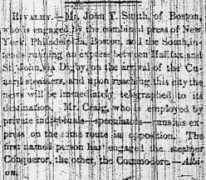 RIVALRY.—Mr. John T. Smith, of Boston,
who is engaged by the combined press of New
York, Philadelphia, Boston, and the South, in-
tends running an express between Halifax and
St. John, via Digby, on the arrival of the Cu-
nard steamers, and upon reaching this city the
news will be immediately telegraphed to its
destination. Mr. Craig, who is employed by
private individuals—speculators—runs his ex-
press on the same route in opposition. The
first named person has engaged the steamer
Conqueror, the other, the Commodore.—Albi-
on.